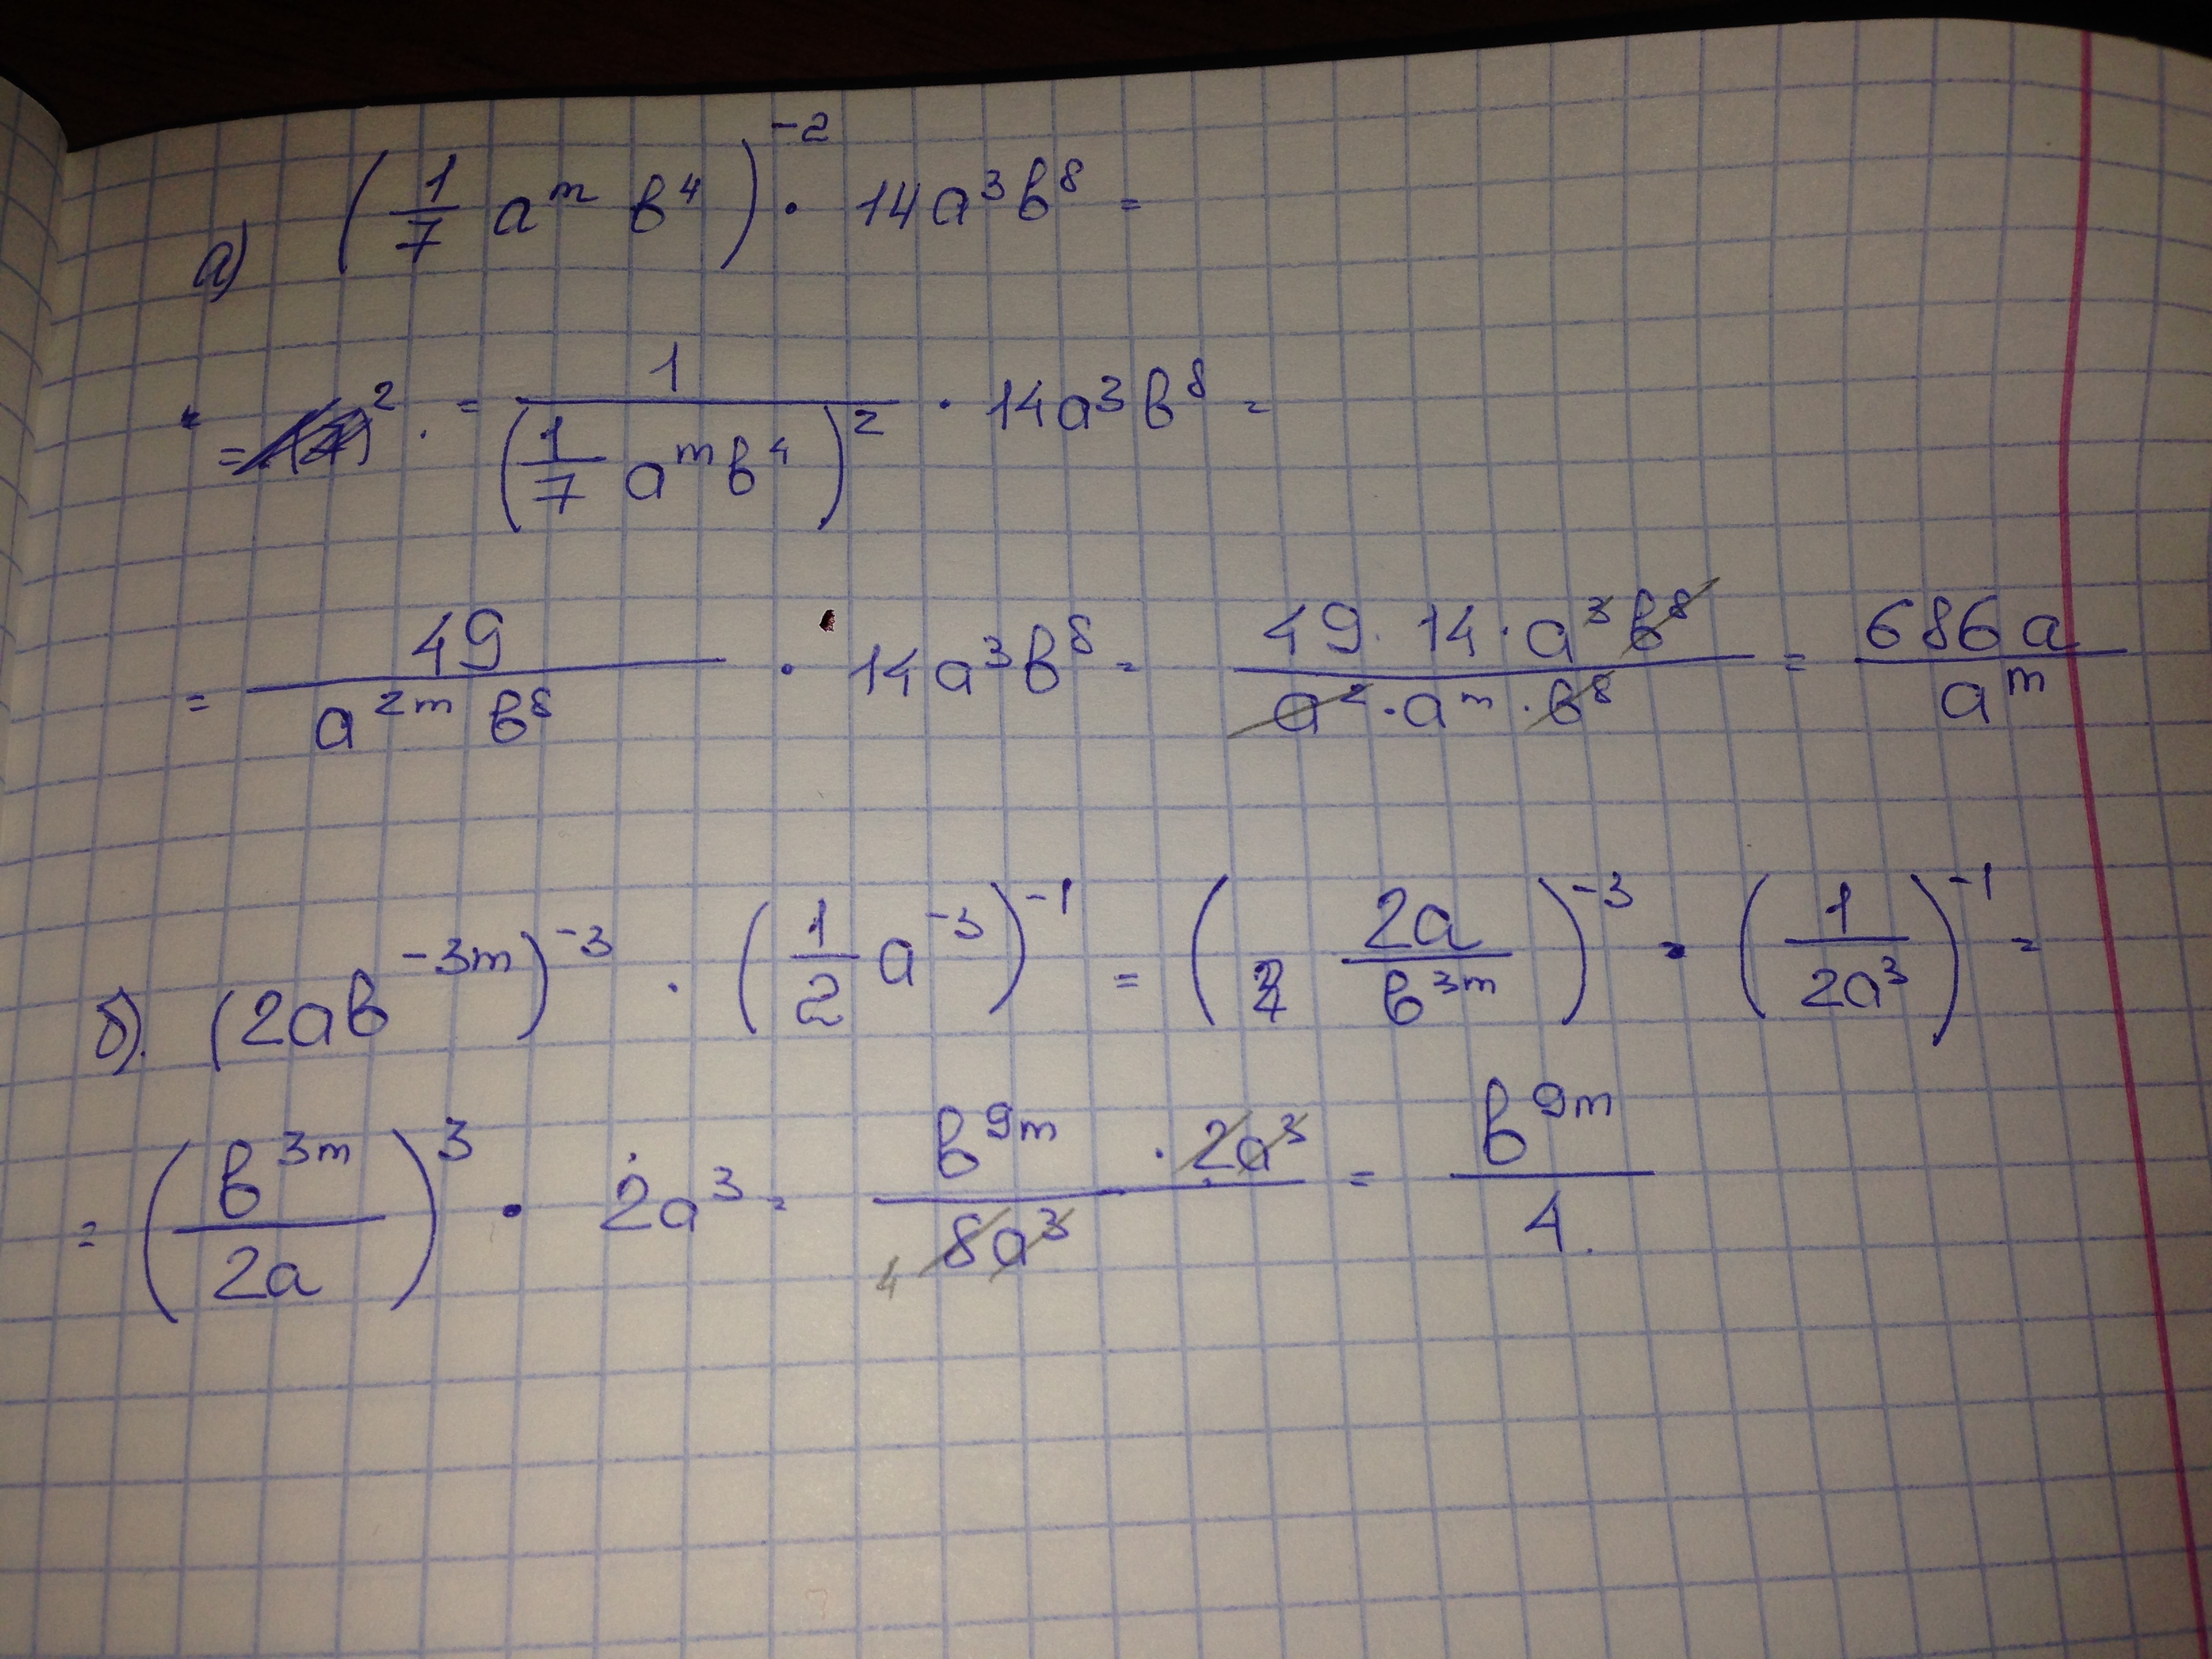 а) (1/7 a^m b^4)^-2 · 14a^3b^8 =
= = 1/(1/7 a^m b^4)^2 · 14a^3b^8 =
= 49/(a^2m b^8) · 14a^3b^8 = (49 · 14 · a^3b^8)/(a^2 · a^m · b^8) = 686a/a^m
б). (2ab^-3m)^-3 · (1/2 a^-3)^-1 = (2a/b^3m)^-3 · (1/2a^3)^-1 =
= (b^3m/2a)^3 · 2a^3 = (b^9m · 2a^3)/(8a^3) 4 = b^9m/4.